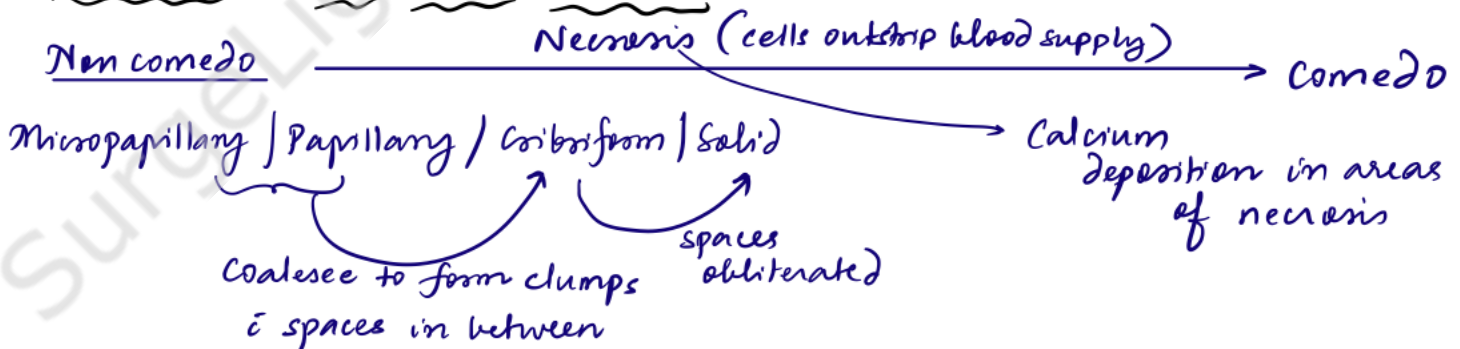 Non comedo
Necrosis (cells outstrip blood supply)
Comedo
Micropapillary / Papillary / Cribriform / Solid
Calcium
deposition in areas
of necrosis
spaces
obliterated
Coalesce to form clumps
c̄ spaces in between
SurgeLig